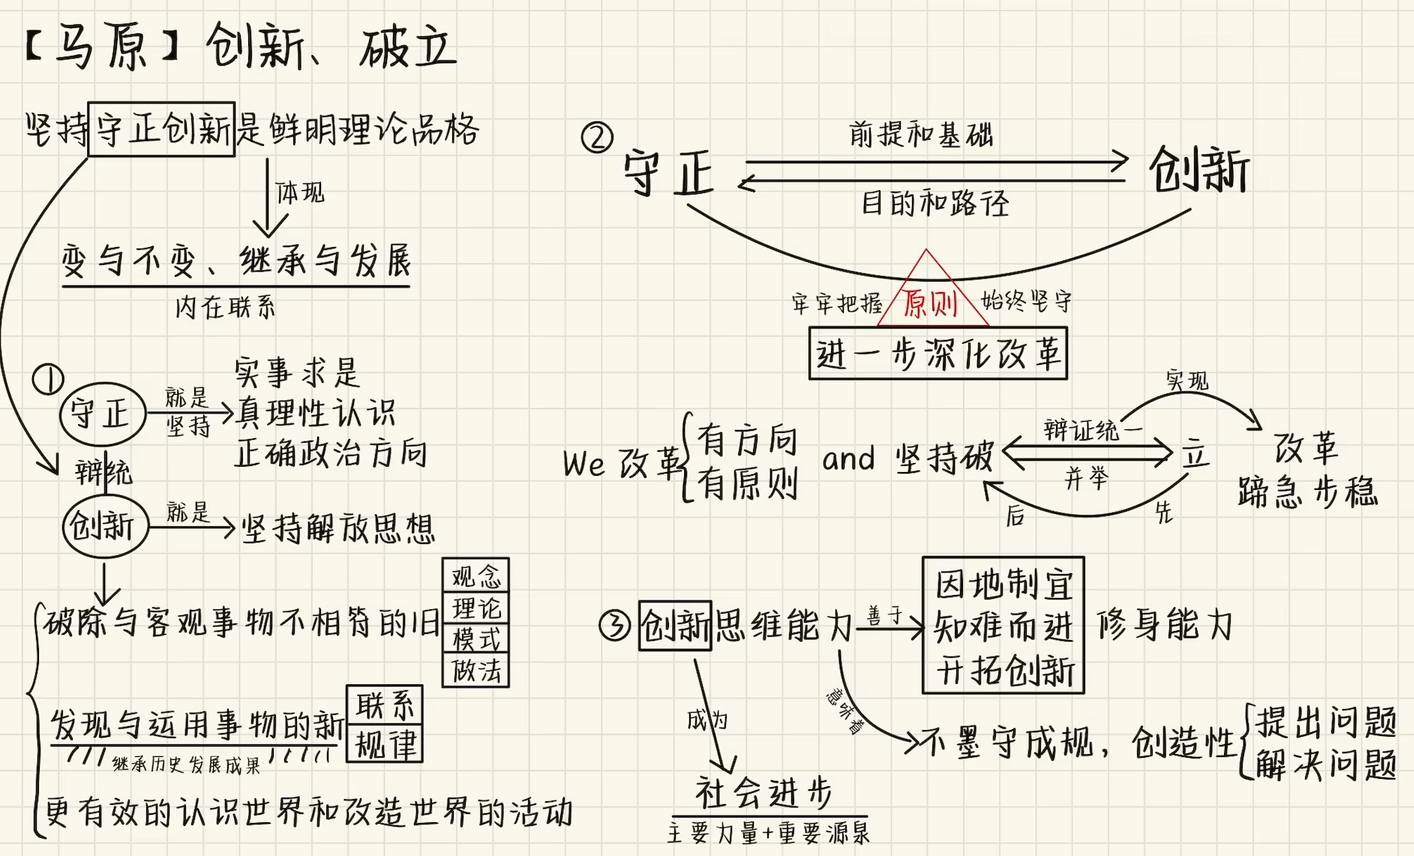 【马原】创新、破立
坚持守正创新是鲜明理论品格
体现
变与不变、继承与发展
内在联系
①
守正
就是
坚持
实事求是
真理性认识
正确政治方向
辩统
创新
就是
坚持解放思想
破除与客观事物不相符的旧
观念
理论
模式
做法
发现与运用事物的新
联系
规律
继承历史发展成果
更有效的认识世界和改造世界的活动
②
守正
前提和基础
目的和路径
创新
牢牢把握
原则
始终坚守
进一步深化改革
We 改革
有方向
有原则
and 坚持破
辩证统一
并举
立
后
先
实现
改革
蹄急步稳
③
创新思维能力
善于
因地制宜
知难而进
开拓创新
修身能力
成为
意味着
不墨守成规，创造性
提出问题
解决问题
社会进步
主要力量+重要源泉